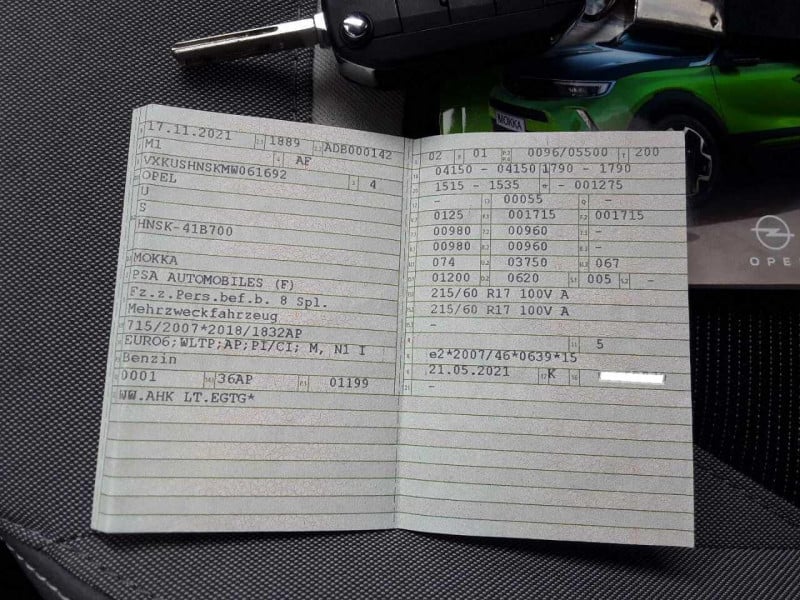 17.11.2021 1889 ADB000142
M1 AF
VXKUSHNSKMW061692 4
OPEL
U
S
HNSK-41B700
MOKKA
PSA AUTOMOBILES (F)
Fz.z.Pers.bef.b. 8 Spl.
Mehrzweckfahrzeug
715/2007*2018/1832AP
EURO6;WLTP;AP;PI/CI; M, N1 I
Benzin
0001 36AP 01199
WW.AHK LT.EGTG*
02 01 0096/05500 200
04150 - 04150 1790 - 1790
1515 - 1535 - 001275
- 00055 -
0125 001715 001715
00980 00960 -
00980 00960 -
074 03750 067
01200 0620 005 -
215/60 R17 100V A
215/60 R17 100V A
-
5
e2*2007/46*0639*15
21.05.2021 K
-
MOKKA
OPE